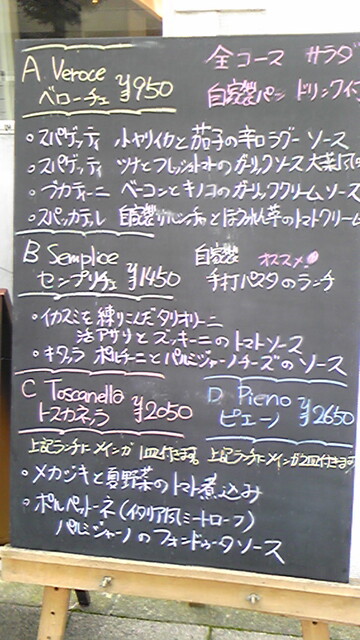 A. Veroce ¥950
ベローチェ
全コース サラダ
自家製パン ドリンク付
。スパゲッティ 小ヤリイカと茄子の辛口ラグーソース
。スパゲッティ ツナとフレッシュトマトのガーリックソース 大葉風
。ブカティーニ ベーコンとキノコのガーリッククリームソース
。スパッカテレ 自家製パンチェッタとほうれん草のトマトクリーム
B Semplice
センプリチェ ¥1450
自家製 オススメ!
手打パスタのランチ
。イカスミを練りこんだタリオリーニ
活アサリとズッキーニのトマトソース
。キタッラ ポルチーニとパルミジャーノチーズのソース
C Toscanella
トスカネッラ ¥2050
上記ランチにメインが1皿付きます。
D. Pieno
ピエーノ ¥2650
上記ランチにメインが2皿付きます
。メカジキと夏野菜のトマト煮込み
。ポルペットーネ(イタリア風ミートローフ)
パルミジャーノのフォンドゥータソース